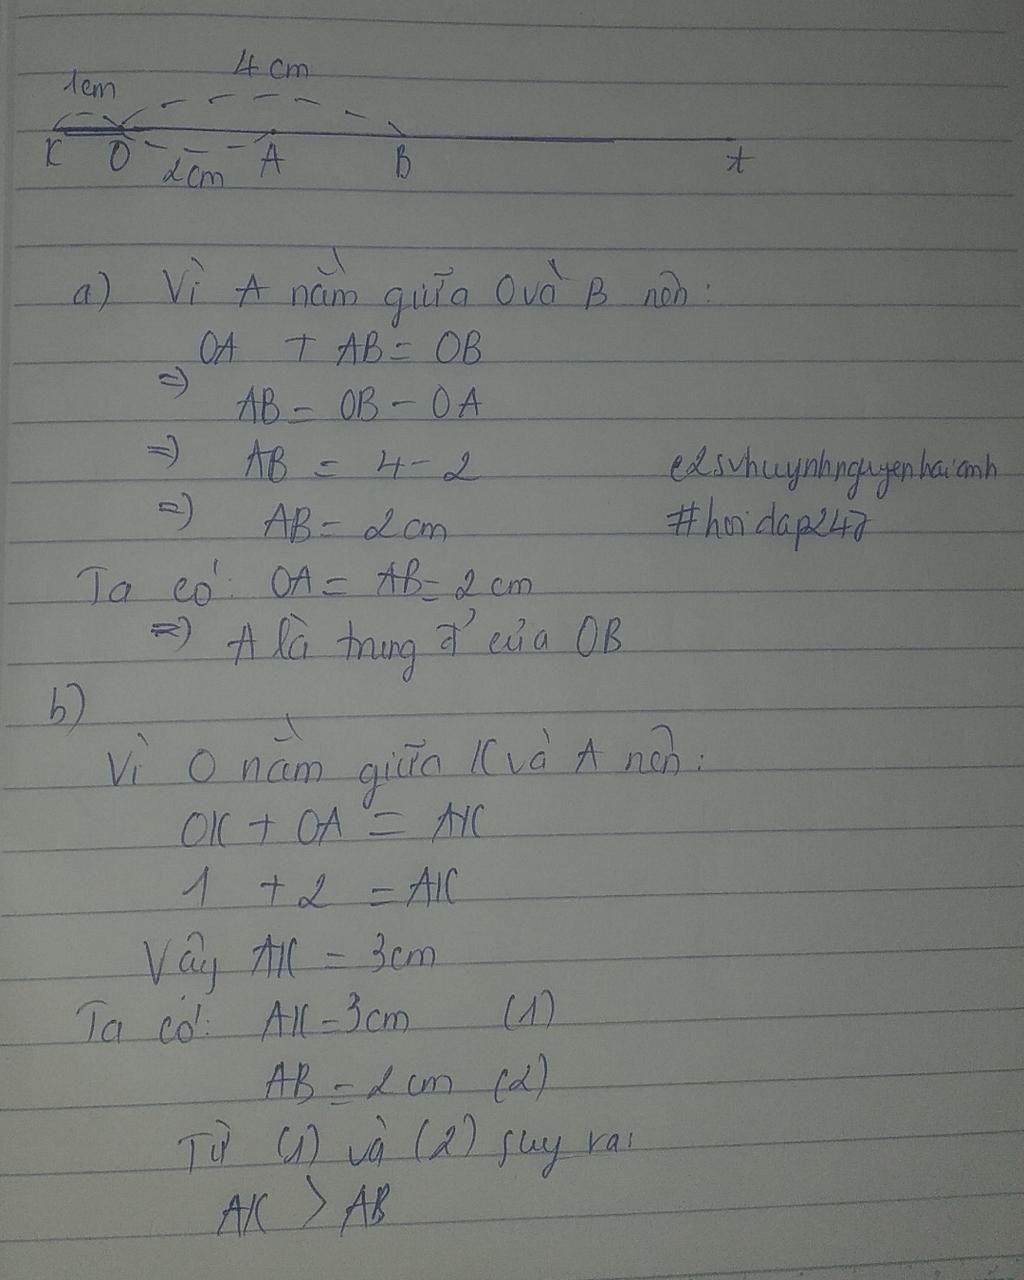 1cm
4 cm
K O A B x
2cm
a) Vì A nằm giữa O và B nên:
OA + AB = OB
=>
AB = OB - OA
=> AB = 4 - 2
e2svhuynhnguyenhaianh
=> AB = 2cm
#hoidap247
Ta có: OA = AB = 2 cm
=> A là trung đ' của OB
b)
Vì O nằm giữa K và A nên:
OK + OA = AK
1 + 2 = AK
Vậy AK = 3cm
Ta có: AK = 3cm (1)
AB = 2 cm (2)
Từ (1) và (2) suy ra:
AK > AB